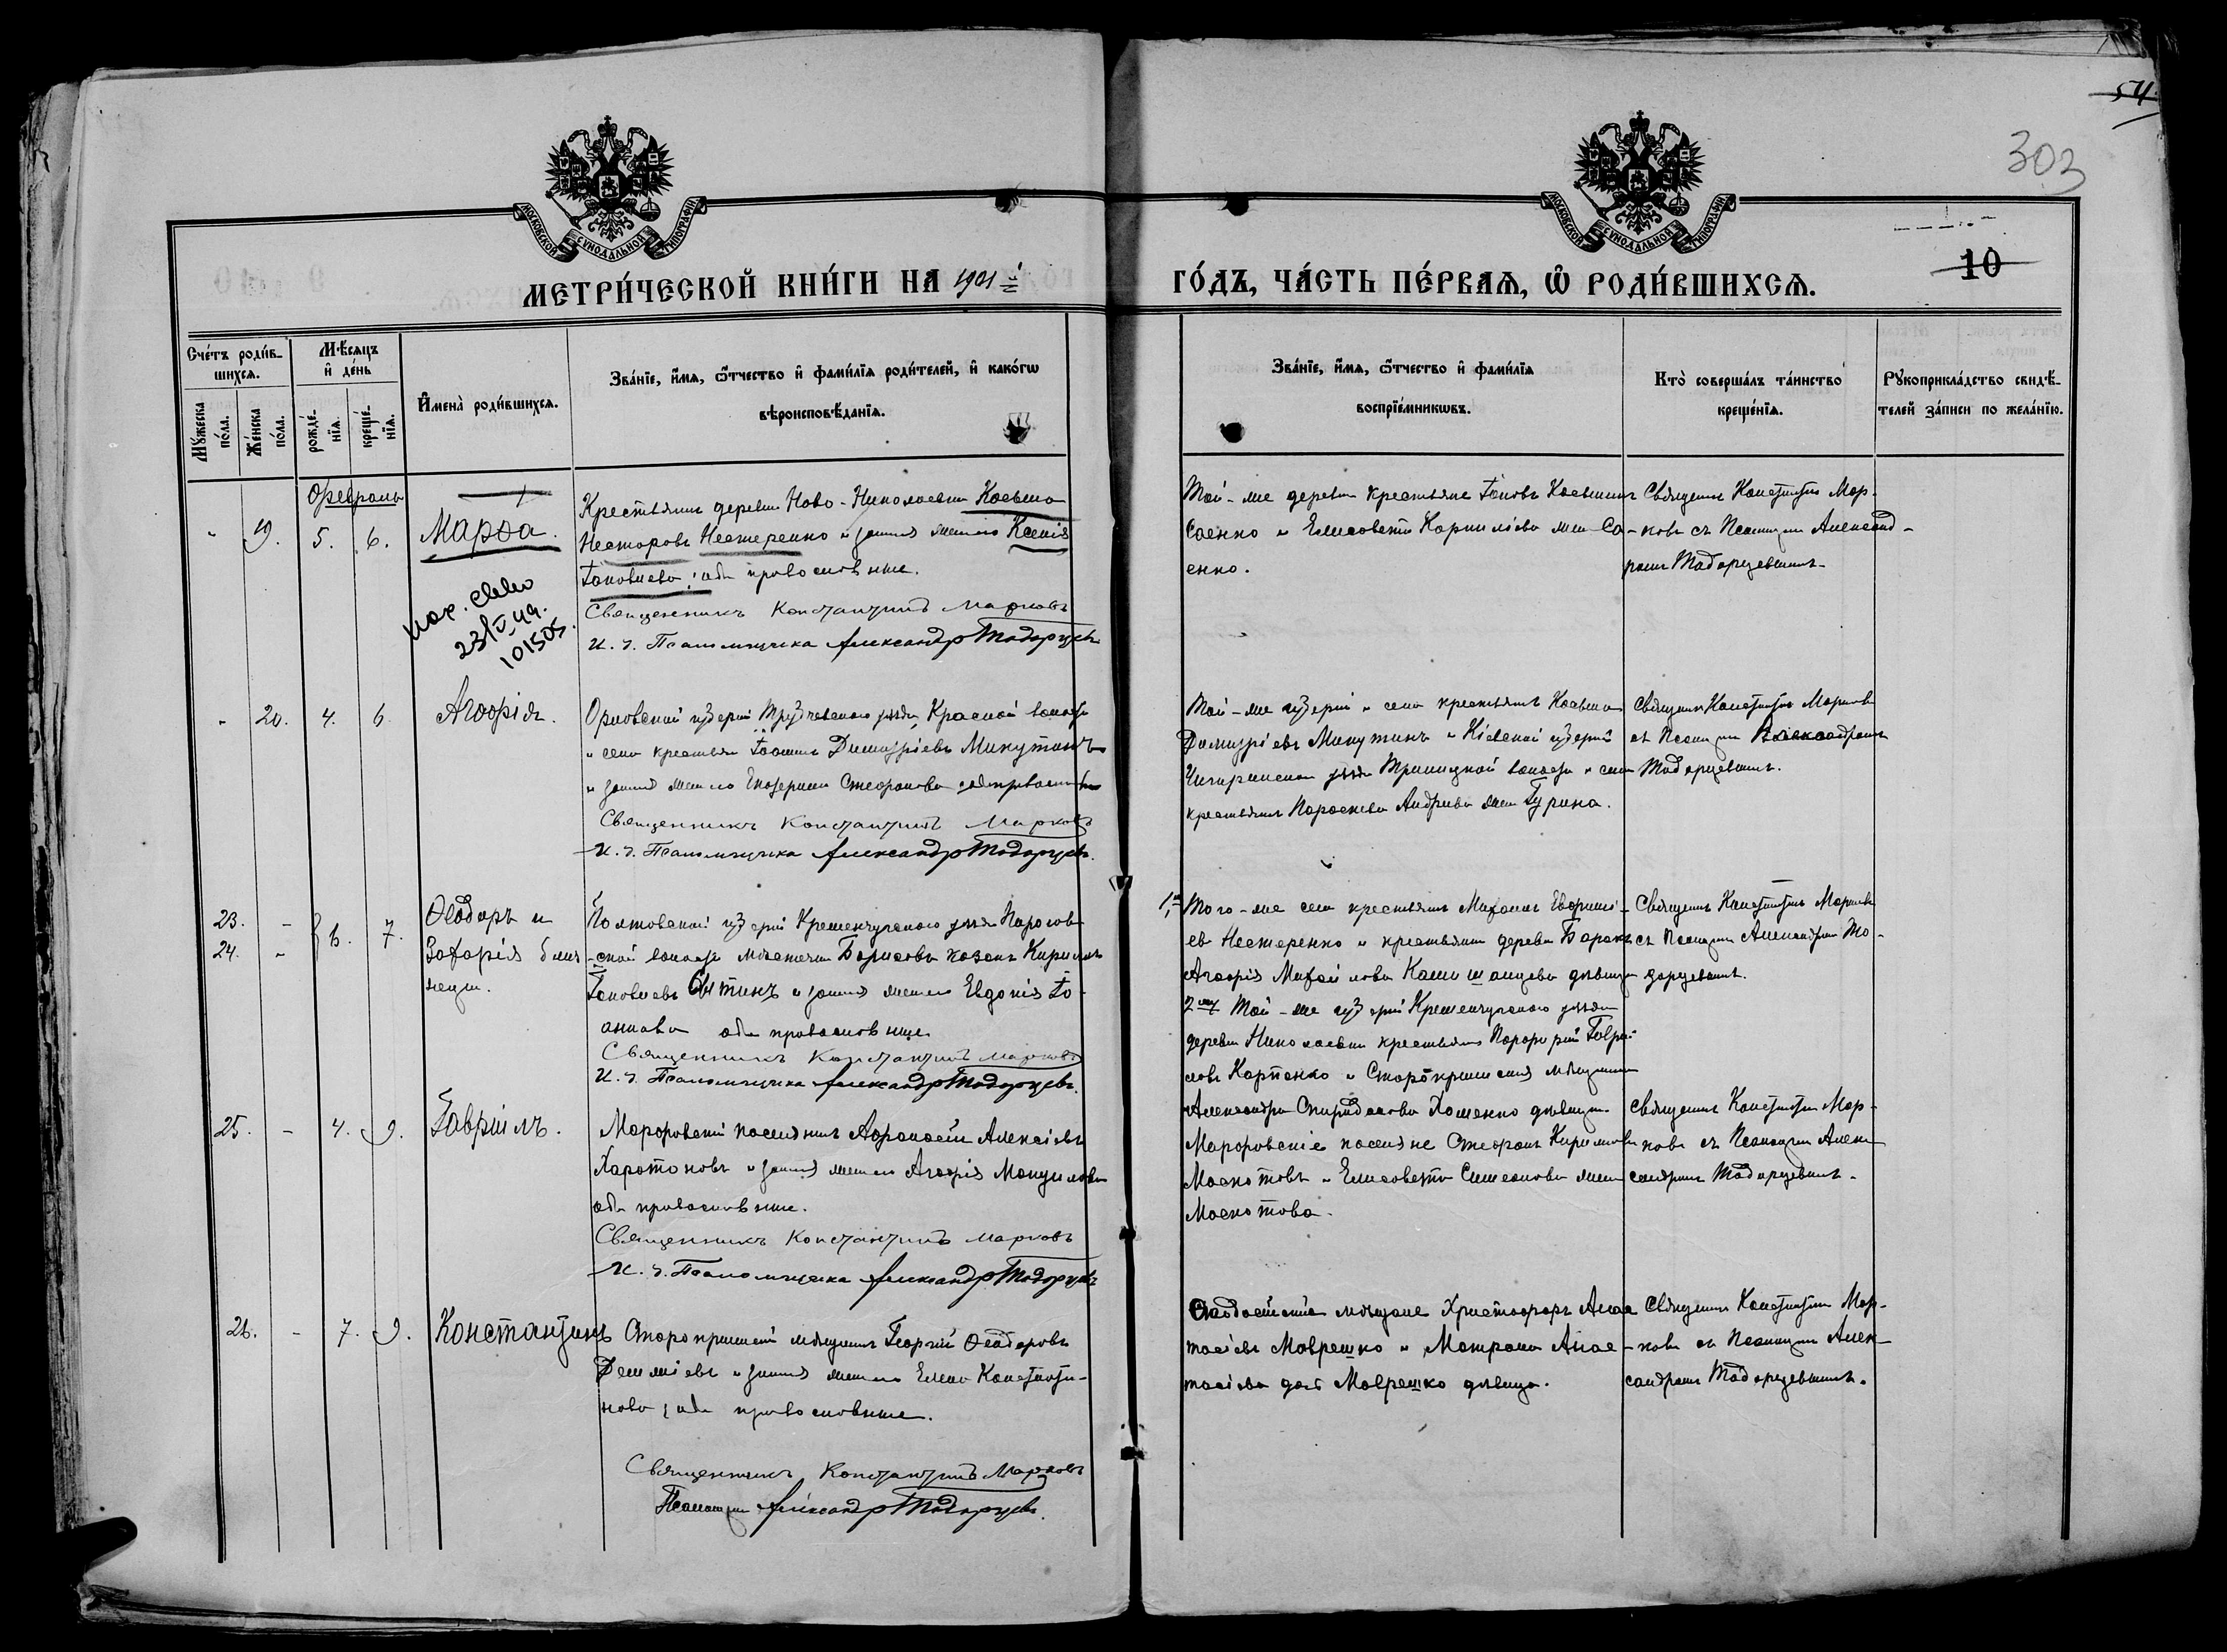 54.
303
10
МОСКОВСКОЙ СѴНОДАЛЬНОЙ ТИПОГРАФІИ
МОСКОВСКОЙ СѴНОДАЛЬНОЙ ТИПОГРАФІИ
МЕТРИ́ЧЕСКОЙ КНИ́ГИ НА 1901 й
ГО́ДЪ, ЧА́СТЬ ПЕ́РВАѦ, Ѡ҆ РОДИ́ВШИХСѦ.
Сче́тъ роди́в-
шихсѧ.
Мѣ́сѧцъ
и҆ де́нь
Мꙋ́жеска по́ла.
Же́нска по́ла.
рожде́-
нїѧ.
креще́-
нїѧ.
И҆мена̀ роди́вшихсѧ.
Зва́нїе, и҆́мѧ, ѻ҆́тчество и҆ фами́лїѧ роди́телей, и҆ како́гѡ
вѣроисповѣ́данїѧ.
Зва́нїе, и҆́мѧ, ѻ҆́тчество и҆ фами́лїѧ
воспрїе́мникѡвъ.
Кто̀ соверша́лъ та́инство
креще́нїѧ.
Рꙋкоприкла́дство свидѣ́-
телей за́писи по жела́нїю.
Февраль
19. 5. 6. Марѳа.
Крестьянинъ деревни Ново-Николаевки Косьма
Несторовъ Нестеренко и законная жена его Ксенія
Іаковлева; оба православные.
Священникъ Константинъ Марковъ
И. д. Псаломщика Александръ Тодорцевъ
23/V 49.
101505.
Той-же деревни крестьяне Іаковъ Косьминъ
Саенко и Елисавета Корнилієва жена Са-
енко.
Священникъ Константинъ Мар-
ковъ съ Псаломщи Александ-
ромъ Тодорцевымъ
20. 4. 6. Агафія.
Орловской губерніи Трубчевского уѣзда, Красной волости
и села крестьян Іоаннъ Димитріевъ Микутинъ
и законная жена его Екатерина Стефанова оба православные
Священникъ Константинъ Марковъ
И. д. Псаломщика Александръ Тодорцевъ.
Той-же губерніи и села крестьянинъ Косьма
Димитріевъ Микутинъ и Кіевской губерніи
Чигиринскаго уѣзда Триницкой волости и села
крестьянка Параскева Андреева жена Гурина.
Священникъ Константинъ Марковъ
съ Псаломщи Александромъ
Тодорцевымъ.
23. 24. 6. 7. Ѳеодоръ и
Захарія близ-
нецы.
Полтовской губерніи Кременчугскаго уѣзда
ской волости мѣстечка Борисовы козакъ Кириллъ
Іаковлевъ и законная жена его Евдокія Іо-
аннова оба православные
Священникъ Константинъ Марковъ
И. д. Псаломщика Александръ Тодорцевъ.
1, Того-же села крестьянинъ Михаилъ Евфимі-
ев Нестеренко и крестьянка деревни
Агафія Михайлова дѣвица
2 Той-же губерніи Кременчугскаго уѣзда
деревни Николаевки крестьянинъ Порфирій Гаври-
ловъ Карпенко и Старокрымская мѣщанка
Александра Спиридонова Хоменко дѣвица.
Священникъ Константинъ Марковъ
съ Псаломщи Александромъ То-
дорцевымъ.
25. 4. 9. Гавріилъ.
Марфовскій поселянинъ Афанасій Алексіевъ
Харатоновъ и законная жена его Агафія Мануилова
оба православные.
Священникъ Константинъ Марковъ
И. д. Псаломщика Александръ Тодорцевъ
Марфовскіе поселяне Стефанъ Кирилловъ
Москотовъ и Елисавета Симеонова жена
Москотова.
Священникъ Константинъ Мар-
ковъ съ Псаломщи Алек-
сандромъ Тодорцевымъ.
26. 7. 9. Константинъ
Старокрымскій мѣщанинъ Георгій Ѳеодоровъ
и законная жена его Елена Константи-
нова; оба православные.
Священникъ Константинъ Марковъ
Псаломщи Александръ Тодорцевъ.
Ѳеодосійскіе мѣщане Христофоръ Анас-
тасіевъ Маврешко и Матрона Анас-
тасіева дочь Маврешко дѣвица.
Священникъ Константинъ Мар-
ковъ съ Псаломщи Алек-
сандромъ Тодорцевымъ.